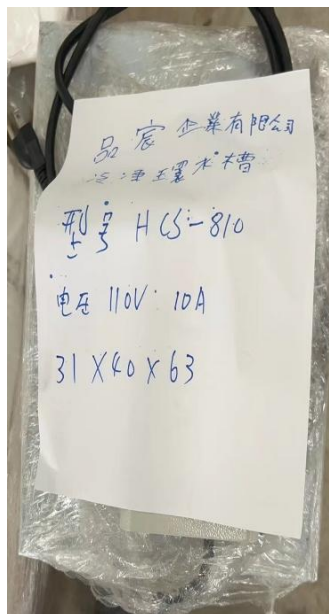 品宸企業有限公司
冷凍環水槽
型号 HCS-810
电压 110V: 10A
31X40X63